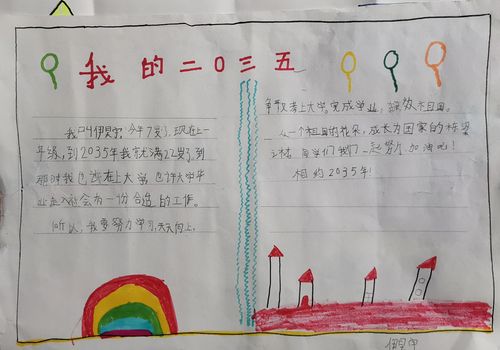 我的二〇三五
我叫伊昊宇,今年7岁了,现在上一
年级,到2035年我就满22岁了,到
那时我已经在上大学,也许大学毕
业走入社会有一份合适的工作。
所以,我要努力学习,天天向上,
争取考上大学,完成学业,报效祖国。
从一个祖国的花朵,成长为国家的栋梁
之材,同学们我们一起努力,加油吧!
相约2035年!